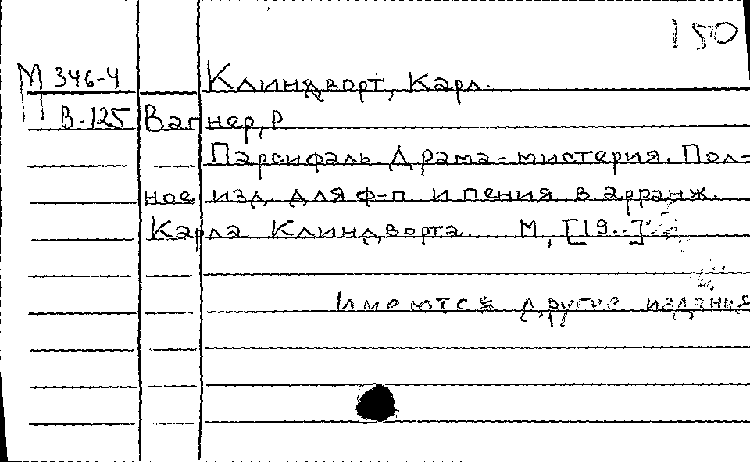 150
М 346-4 Клиндворт, Карл.
В-125 Вагнер, Р
Парсифаль Драма-мистерия. Пол-
ное изд. для ф-п и пения в арранж.
Карла Клиндворта М, [19..]
Имеются другие издания